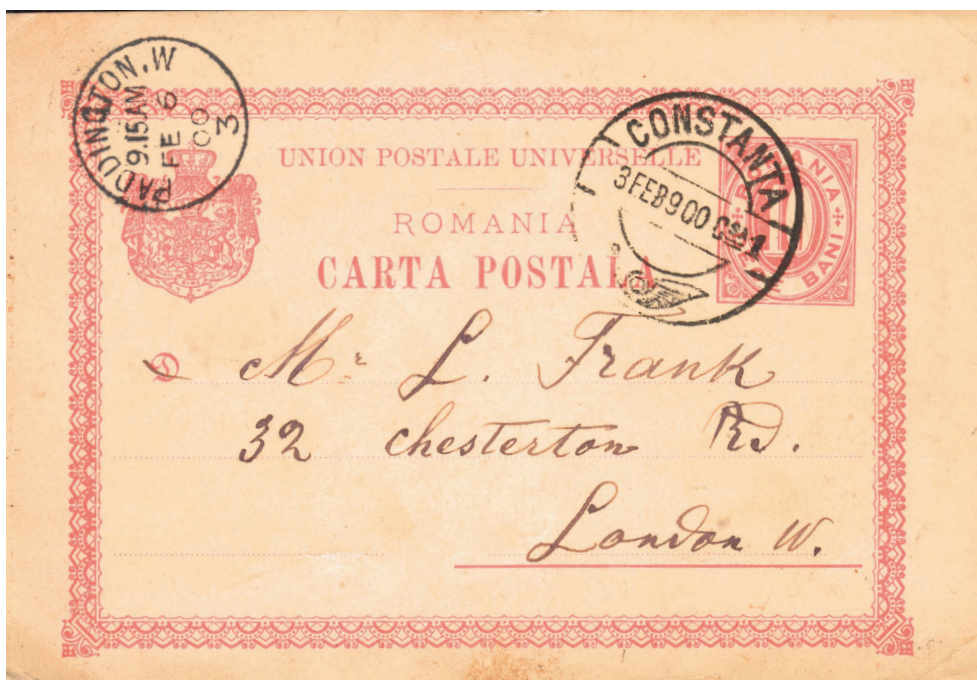 PADDINGTON.W
9.15AM
FE 6
00
3
UNION POSTALE UNIVERSELLE
ROMANIA
CARTA POSTALA
CONSTANTA
3 FEB 900
ROMANIA
10
BANI
Mr L. Frank
32 Chesterton Rd.
London W.